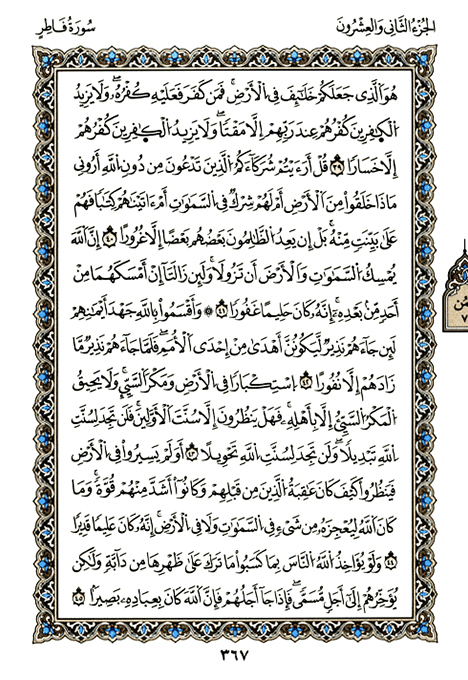 الجزء الثاني والعشرون
سورة فاطر
هُوَ الَّذِي جَعَلَكُمْ خَلَٰٓئِفَ فِي الْأَرْضِ ۚ فَمَن كَفَرَ فَعَلَيْهِ كُفْرُهُۥ ۖ وَلَا يَزِيدُ
الْكَٰفِرِينَ كُفْرُهُمْ عِندَ رَبِّهِمْ إِلَّا مَقْتًا ۖ وَلَا يَزِيدُ الْكَٰفِرِينَ كُفْرُهُمْ
إِلَّا خَسَارًا ٣٩ قُلْ أَرَءَيْتُمْ شُرَكَآءَكُمُ الَّذِينَ تَدْعُونَ مِن دُونِ اللَّهِ أَرُونِي
مَاذَا خَلَقُوا مِنَ الْأَرْضِ أَمْ لَهُمْ شِرْكٌ فِي السَّمَٰوَٰتِ أَمْ ءَاتَيْنَٰهُمْ كِتَٰبًا فَهُمْ
عَلَىٰ بَيِّنَتٍ مِّنْهُ ۚ بَلْ إِن يَعِدُ الظَّٰلِمُونَ بَعْضُهُم بَعْضًا إِلَّا غُرُورًا ٤٠ إِنَّ اللَّهَ
يُمْسِكُ السَّمَٰوَٰتِ وَالْأَرْضَ أَن تَزُولَا ۚ وَلَئِن زَالَتَآ إِنْ أَمْسَكَهُمَا مِنْ
أَحَدٍ مِّنۢ بَعْدِهِۦٓ ۚ إِنَّهُۥ كَانَ حَلِيمًا غَفُورًا ٤١ ۞ وَأَقْسَمُوا بِاللَّهِ جَهْدَ أَيْمَٰنِهِمْ
لَئِن جَآءَهُمْ نَذِيرٌ لَّيَكُونُنَّ أَهْدَىٰ مِنْ إِحْدَى الْأُمَمِ ۖ فَلَمَّا جَآءَهُمْ نَذِيرٌ مَّا
زَادَهُمْ إِلَّا نُفُورًا ٤٢ اسْتِكْبَارًا فِي الْأَرْضِ وَمَكْرَ السَّيِّئِ ۚ وَلَا يَحِيقُ
الْمَكْرُ السَّيِّئُ إِلَّا بِأَهْلِهِۦ ۚ فَهَلْ يَنظُرُونَ إِلَّا سُنَّتَ الْأَوَّلِينَ ۚ فَلَن تَجِدَ لِسُنَّتِ
اللَّهِ تَبْدِيلًا ۖ وَلَن تَجِدَ لِسُنَّتِ اللَّهِ تَحْوِيلًا ٤٣ أَوَلَمْ يَسِيرُوا فِي الْأَرْضِ
فَيَنظُرُوا كَيْفَ كَانَ عَٰقِبَةُ الَّذِينَ مِن قَبْلِهِمْ وَكَانُوٓا أَشَدَّ مِنْهُمْ قُوَّةً ۚ وَمَا
كَانَ اللَّهُ لِيُعْجِزَهُۥ مِن شَيْءٍ فِي السَّمَٰوَٰتِ وَلَا فِي الْأَرْضِ ۚ إِنَّهُۥ كَانَ عَلِيمًا قَدِيرًا
٤٤ وَلَوْ يُؤَاخِذُ اللَّهُ النَّاسَ بِمَا كَسَبُوا مَا تَرَكَ عَلَىٰ ظَهْرِهَا مِن دَآبَّةٍ وَلَٰكِن
يُؤَخِّرُهُمْ إِلَىٰٓ أَجَلٍ مُّسَمًّى ۖ فَإِذَا جَآءَ أَجَلُهُمْ فَإِنَّ اللَّهَ كَانَ بِعِبَادِهِۦ بَصِيرًا ٤٥
٣٦٧